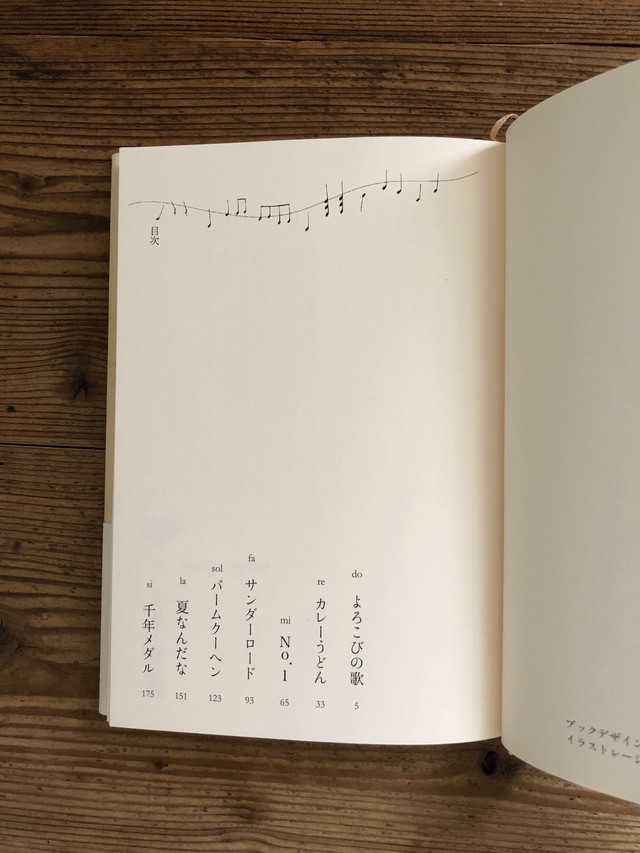 目次
do よろこびの歌 5
re カレーうどん 33
mi No.1 65
fa サンダーロード 93
sol バームクーヘン 123
la 夏なんだな 151
si 千年メダル 175
ブックデザイン
イラストレーシ